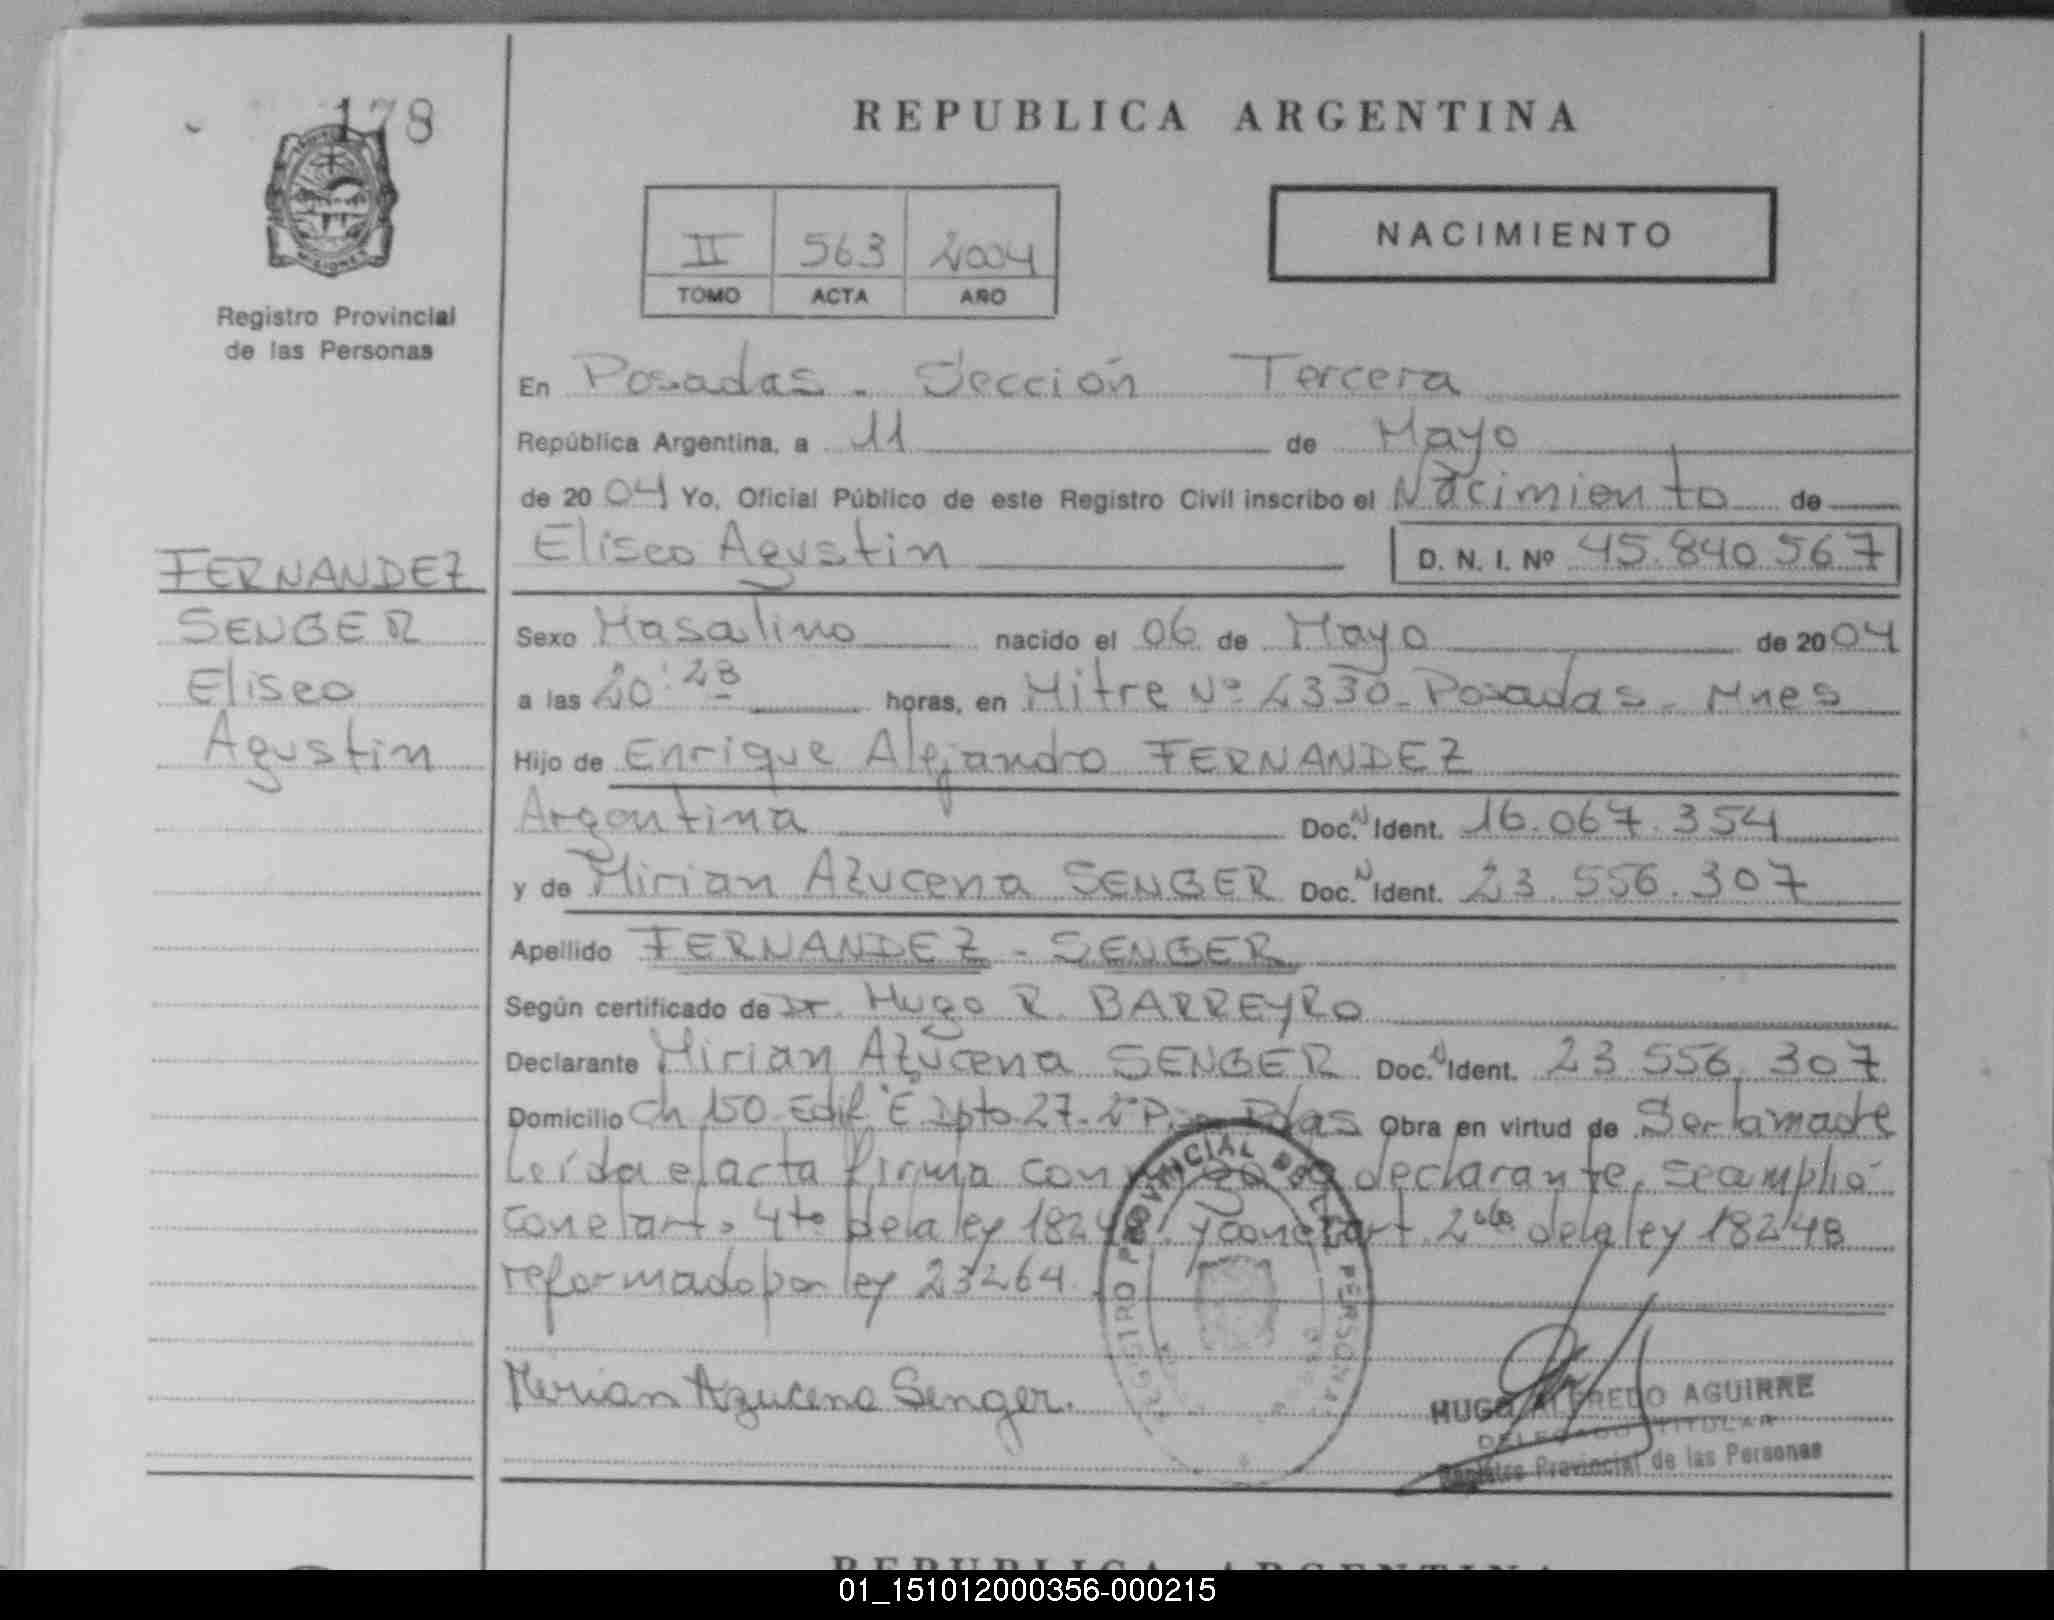 178
REPUBLICA ARGENTINA
MISIONES
Registro Provincial
de las Personas
II 563 2004
TOMO ACTA AÑO
NACIMIENTO
En Posadas - Sección Tercera
República Argentina, a 11 de Mayo
de 2004 Yo, Oficial Público de este Registro Civil inscribo el Nacimiento de
Eliseo Agustin D. N. I. Nº 45.840.567
FERNANDEZ
SENGER
Eliseo
Agustin
Sexo Masalino nacido el 06 de Mayo de 2004
a las 20:28 horas, en Mitre Nº 2330 - Posadas - Mnes
Hijo de Enrique Alejandro FERNANDEZ
Argentina Doc. N Ident. 16.067.354
y de Mirian Azucena SENGER Doc. N Ident. 23.556.307
Apellido FERNANDEZ - SENGER
Según certificado de Dr. Hugo R. BARREYRO
Declarante Mirian Azucena SENGER Doc. N Ident. 23.556.307
Domicilio Ch 150 Edif. "E" Dpto 27 - 2º P Pdas Obra en virtud de Ser la madre
Leída el acta firma la declarante, se amplió
con el art. 4to de la ley y con el art. 2do de la ley 18248
reformado por ley 23264.
Mirian Azucena Senger.
REGISTRO PROVINCIAL DE LAS PERSONAS
HUGO ALFREDO AGUIRRE
DELEGADO TITULAR
Registro Provincial de las Personas
REPUBLICA ARGENTINA
01_151012000356-000215